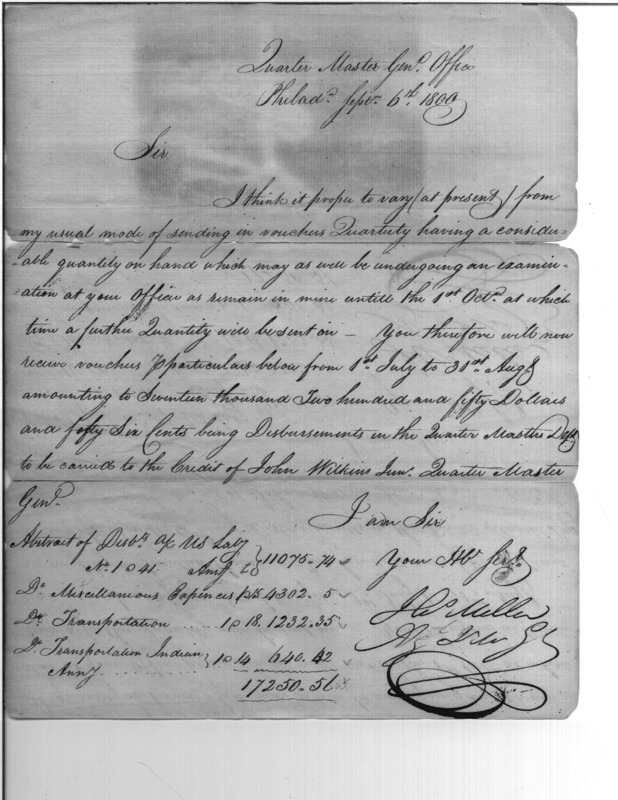 Quarter Master Genl. Office
Philada. Septr. 6th. 1800
Sir
I think it proper to vary (at present) from
my usual mode of sending in vouchers Quarterly having a consider-
-able quantity on hand which may as well be undergoing an examin-
-ation at your Office as remain in mine untill the 1st Octr. at which
time a further Quantity will be sent on — You therefore will now
receive vouchers P particulars below from 1st. July to 31st. Augt.
amounting to Seventeen thousand Two hundred and fifty Dollars
and fifty Six Cents being Disbursements in the Quarter Masters Dept.
to be carried to the Credit of John Wilkins Junr. Quarter Master
Genl.
I am Sir
Abstract of Disbts. a/c US
No. 1 @ 41. Amtg. 11075.74
Your Hbl. Servt.
Do. Miscellanious Expences 4302.5
Do. Transportation .... 1 @ 18. 1232.35
Do. Transportation Indian 1 @ 14 640.42
Anny
17250.56
Jo. Miller